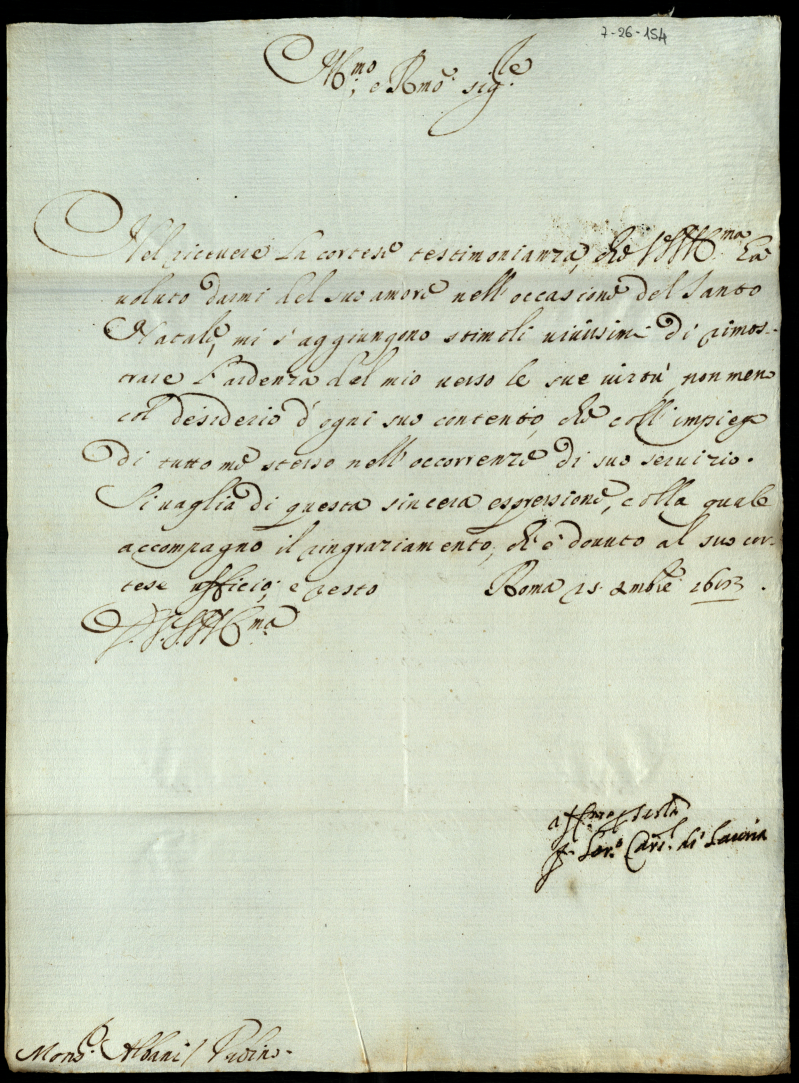 7-26-154
Ill.mo, e Rmo. sig.re
Nel riceuere la cortese testimonianza, che VSIll.ma hà
uoluto darmi del suo amore nell'occasione del Santo
Natale, mi s'aggiungono stimoli uiuissimi di dimos-
trare l'ardenza del mio uerso le sue uirtù, non men
col desiderio d'ogni suo contento, che coll'impiego
di tutto me stesso nell'occorrenze di suo seruizio.
Si uaglia di questa sincera espressione, colla quale
accompagno il ringraziamento, ch'è douuto al suo cor-
tese ufficio, e resto Roma 25. Xmbre
V.S.Ill.ma
aff.mo per seru.la
fr Lor.o Card.l di Lauria
Mons.r Albani / Vrbino.